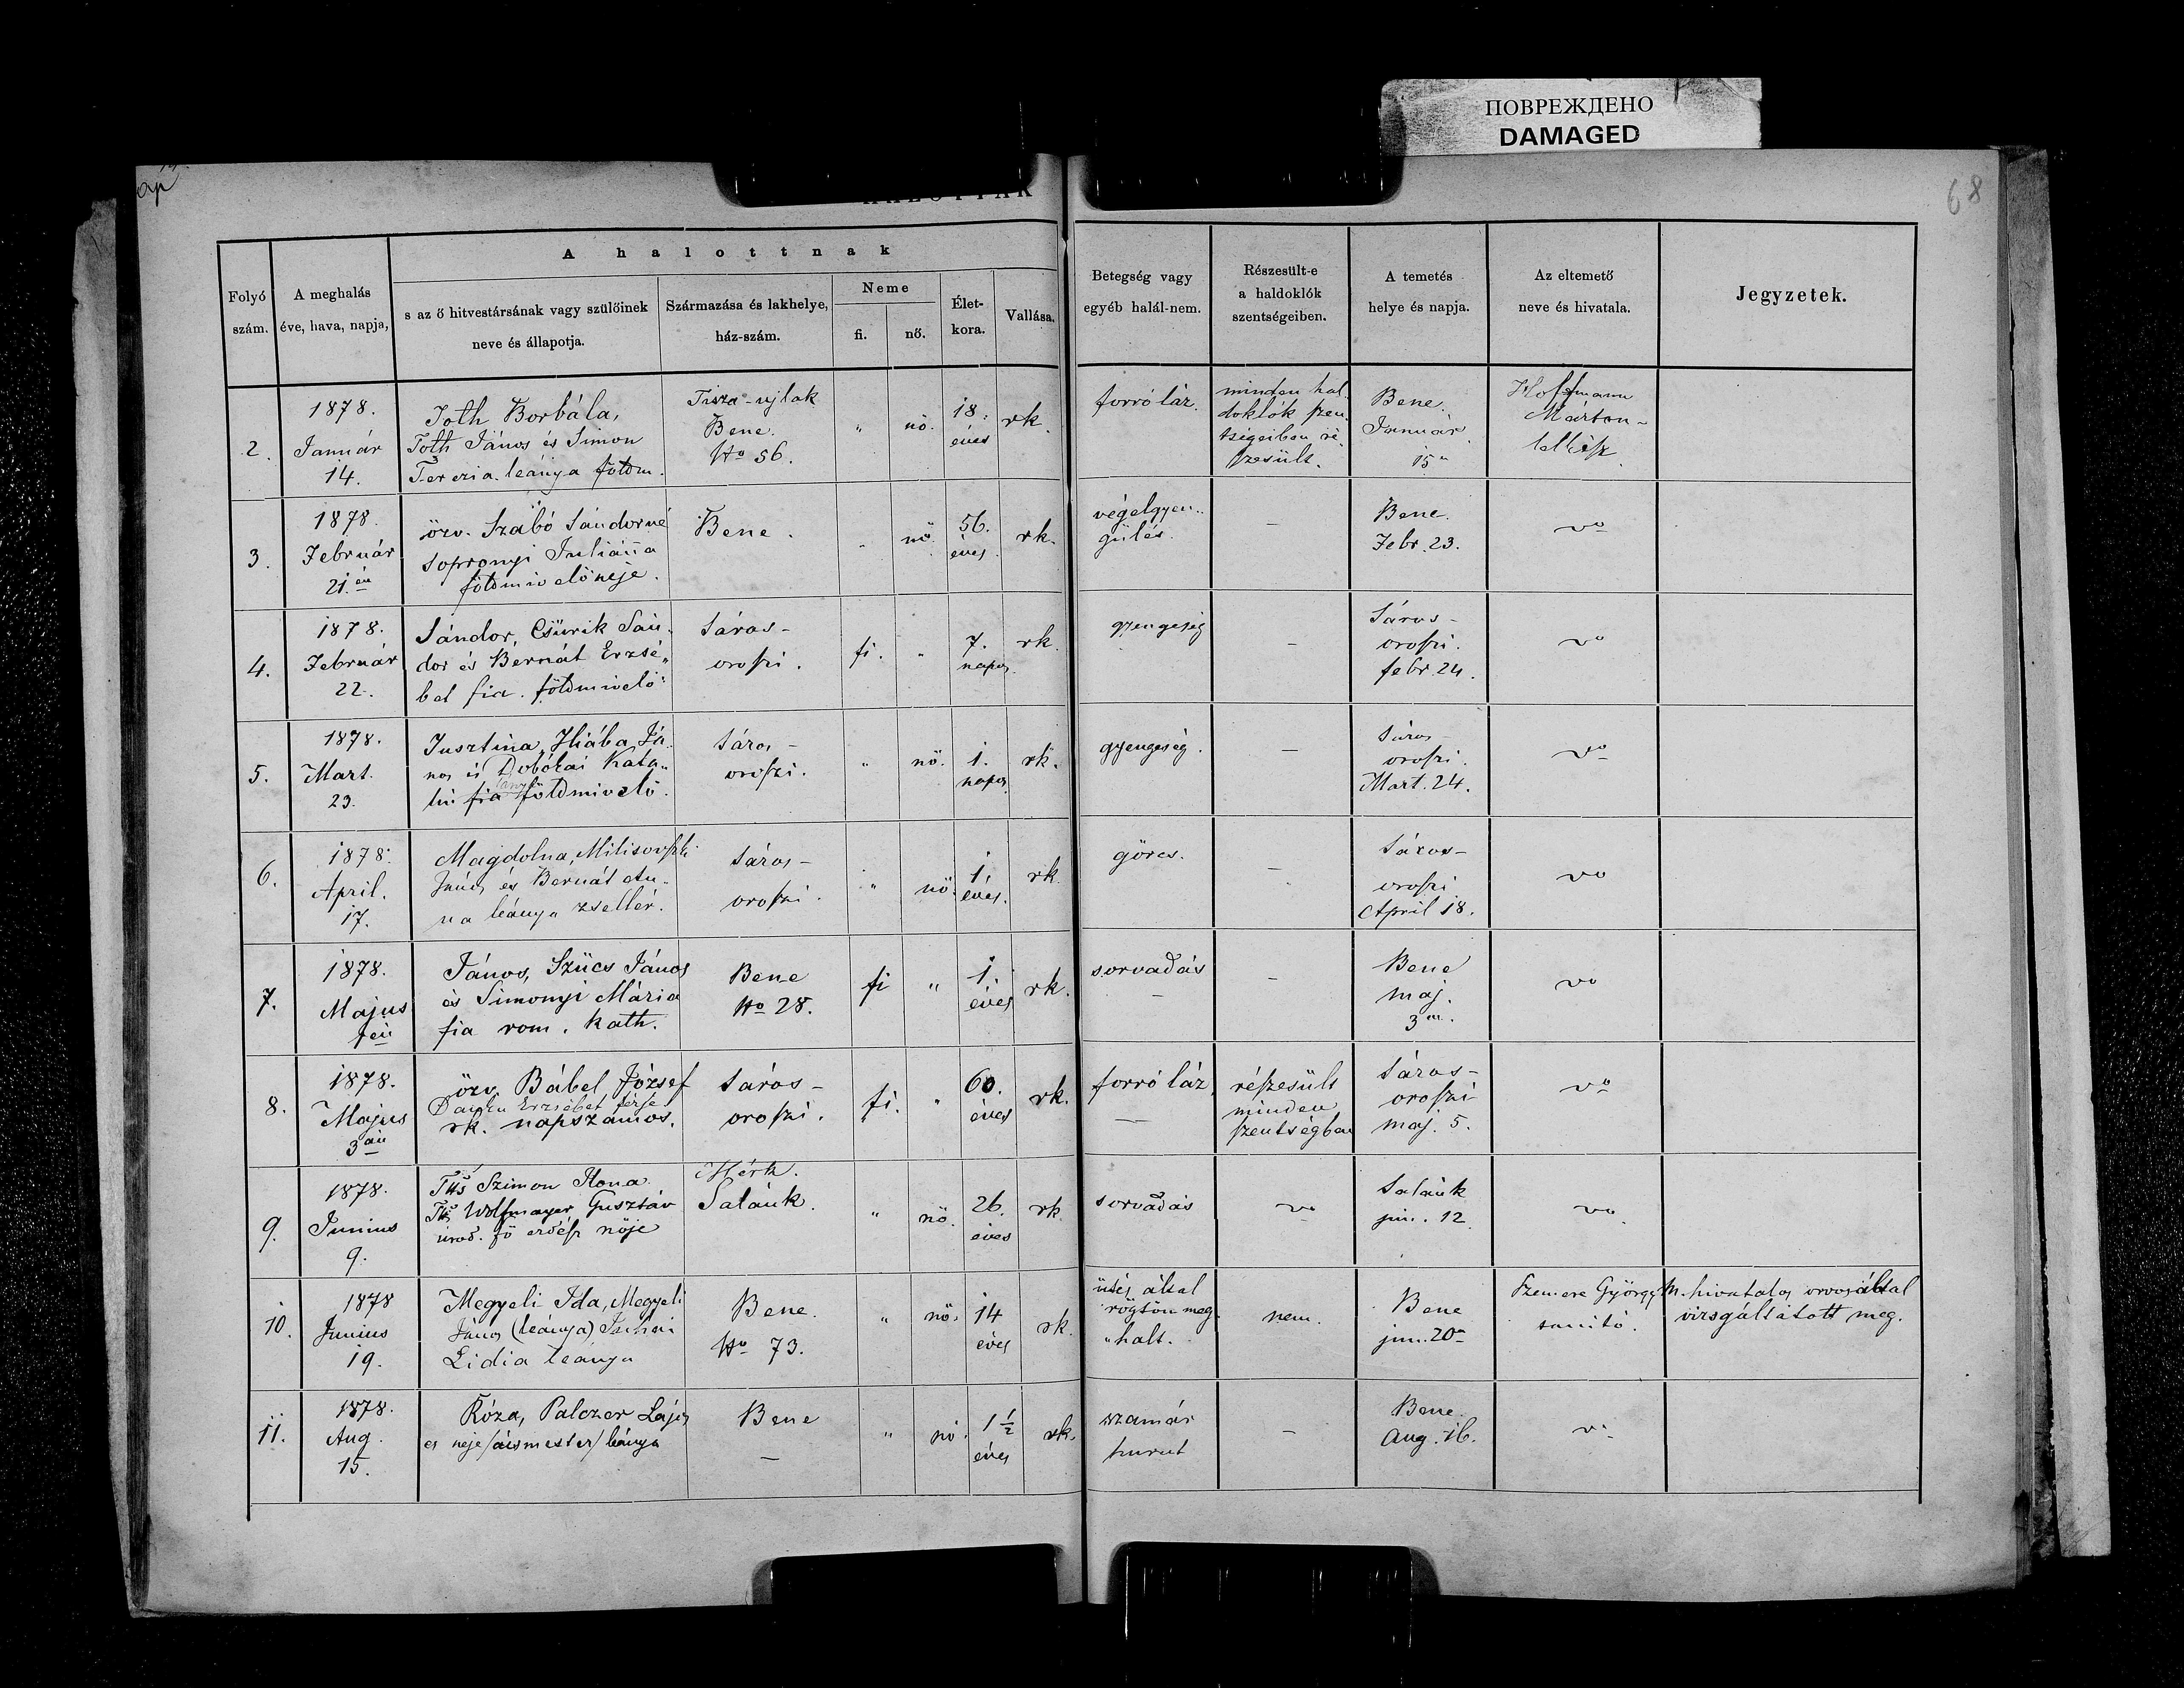 ПОВРЕЖДЕНО
DAMAGED
68
A halottnak
Folyó szám.
A meghalás éve, hava, napja,
s az ő hitvestársának vagy szülőinek neve és állapotja.
Származása és lakhelye, ház-szám.
Neme
fi.
nő.
Élet-kora.
Vallása.
Betegség vagy egyéb halál-nem.
Részesült-e a haldoklók szentségeiben.
A temetés helye és napja.
Az eltemető neve és hivatala.
Jegyzetek.
2.
1878.
Január
14.
Toth Borbála,
Toth János és Simon
Terezia leánya földm.
Tisza-ujlak
Bene.
No 56.
"
nö.
18.
éves
rk.
forró láz.
minden hal-
doklók szen-
tségeiben ré-
szesült.
Bene.
Január
15n
Hoffmann
Márton
lelkész
3.
1878.
Február
21.én
özv. Szabó Sándorné
Sopronyi Juliánna
földmivelö neje.
Bene.
"
nö.
56.
éves
rk.
végelgyen-
gülés.
—
Bene.
Febr. 23.
vo
4.
1878.
Február
22.
Sándor, Csurik Sán-
dor és Bernát Erzsé-
bet fia. földmivelö
Sáros-
oroszi.
fi.
"
7.
napos.
rk.
gyengeség
—
Sáros-
oroszi.
febr. 24.
vo
5.
1878.
Mart.
23.
Jusztina, Hiába Já-
nos és Dobókai Kata-
lin fia földmivelö.
Sáros-
oroszi.
"
nö.
1.
napos
rk.
gyengeség.
—
Sáros-
oroszi.
Mart. 24.
vo
6.
1878.
April.
17.
Magdolna, Milisovszki
János és Bernát An-
na leánya zsellér.
Sáros-
oroszi.
"
nö.
1.
éves.
rk.
görcs.
—
Sáros-
oroszi
April 18.
vo
7.
1878.
Majus
1én
János, Szücs János
és Simonyi Mária
fia rom. kath.
Bene
No 28.
fi
"
1.
éves
rk.
sorvadás
—
Bene
maj.
3án.
vo
8.
1878.
Majus
3án
özv. Bábel József
Danku Erzsébet férje
rk. napszámos.
Sáros-
oroszi.
fi.
"
60.
éves
rk.
forró láz
részesült
minden
szentségben
Sáros-
oroszi
maj. 5.
vo
9.
1878.
Junius
9.
Tks Szimon Ilona
Tks Wolfmayer Gusztáv
urad. fö erdész nöje
Mérk.
Salánk.
"
nö.
26.
éves
rk
sorvadás
vo
Salánk
jun. 12
vo
10.
1878
Junius
19.
Megyeli Ida, Megyeli
János (leánya)
Lidia leánya
Bene.
No 73.
"
nö.
14
éves
rk.
ütés által
rögtön meg-
halt.
nem.
Bene
jun. 20n
Szemere György
tanitó.
M. hivatalos orvos által
visgáltatott meg.
11.
1878.
Aug.
15.
Róza, Palczer Lajos
es neje /ácsmester/ leánya
Bene
—
"
nö.
1 1/2
éves
rk.
szamár
hurut
—
Bene.
Aug. 16.
vo